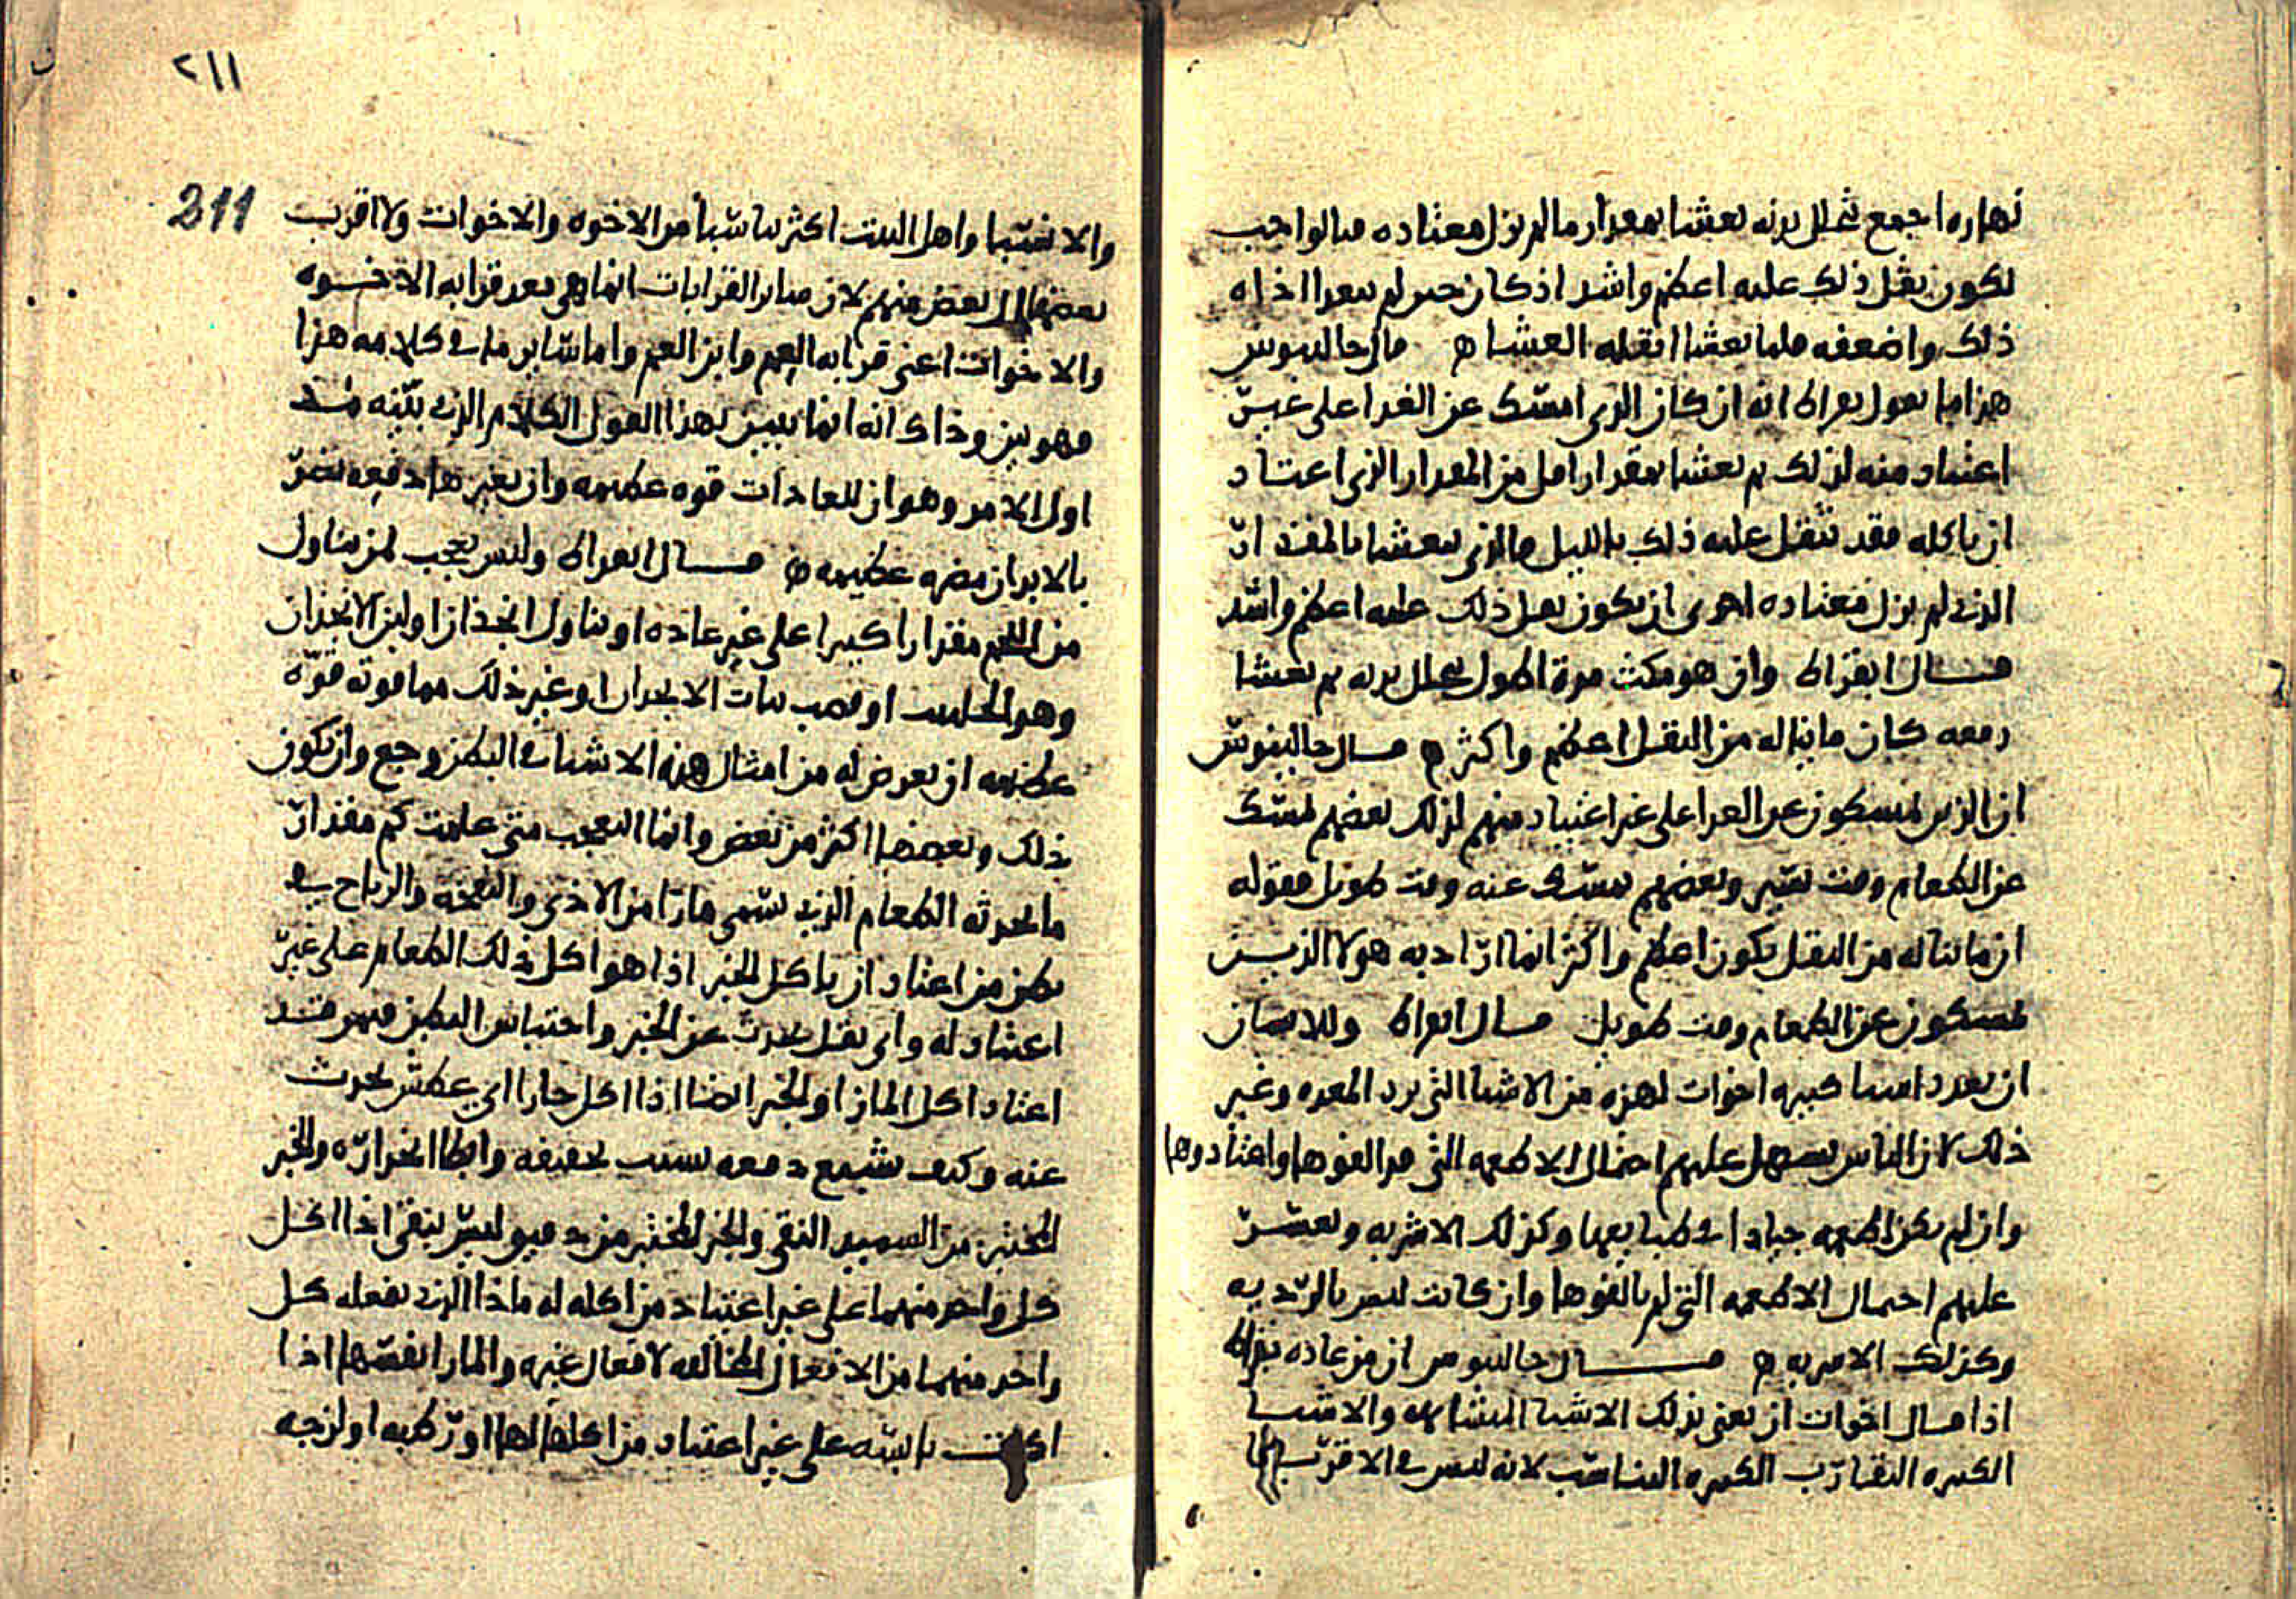 نهاره اجمع تحلل بدنه تعشا بمقدار ما لم يزل معتاده فبالواجب
يكون يثقل ذلك عليه اعظم واشد اذ كان حين لم يتغدا اذاه
ذلك واضعفه فلما تعشا اثقله العشا ه قال جالينوس
هذا ما يقول بقراط انه ان كان الذي امسك عن الغدا على غير
اعتياد منه لذلك ثم تعشا بمقدار اقل من المقدار الذي اعتاد
ان ياكله فقد يثقل عليه ذلك بالليل فالذي يتعشا بالمقدار
الذي لم يزل معتاده احرى ان يكون يثقل ذلك عليه اعظم واشد
قال ابقراط وان هو مكث مدة اطول تحلل بدنه ثم تعشا
دفعه كان ما يناله من الثقل اعظم واكثر ه قال جالينوس
ان الذين يمسكون عن الغدا على غير اعتياد منهم لذلك بعضهم يمسك
عن الطعام وقت يسير وبعضهم يمسك عنه وقت طويل فقوله
ان ما يناله من الثقل يكون اعظم واكثر انما اراد به هولا الذين
يمسكون عن الطعام وقت طويل قال ابقراط وللانسان
ان يعدد اشيا كثيره اخوات لهذه من الاشيا التي برد المعده وغير
ذلك لان الناس يسهل عليهم احتمال الاطعمه التي قد الفوها واعتادوها
وان لم تكن اطعمه جيادا في طبايعها وكذلك الاشربه ويعسر
عليهم احتمال الاطعمه التي لم يالفوها وان كانت ليس بالرديه
وكذلك الاشربه ه قال جالينوس ان من عادة بقراط
اذا قال اخوات ان يعني بذلك الاشيا المتشابهه والاشيا
الكثيره التقارب الكثيره التناسب لانه ليس في الاقرب
٢١١
211
والانسبا واهل البيت اكثر تناسبا من الاخوه والاخوات ولا اقرب
بعضها الى بعض منهم لان ساير القرابات انما هي بعد قرابه الاخوه
والاخوات اعني قرابه العم وابن العم واما ساير ما في كلامه هذا
فهو بين وذاك انه انما يبين بهذا القول الكلام الذي بينه منذ
اول الامر وهو ان للعادات قوه عظيمه وان تغيرها دفعه يضر
بالابدان مضره عظيمه ه قال ابقراط وليس يجب لمن تناول
من اللحم مقدارا كثيرا على غير عاده او تناول انجذان او لبن الانجذان
وهو الحلتيت او قصب نبات الانجدان او غير ذلك مما قوته قوه
عظيمه ان يعرض له من امثال هذه الاشيا في البطن وجع وان يكون
ذلك وبعضها اكثر من بعض وانما التعجب متى علمت كم مقدار
ما يحدثه الطعام الذي يسمى مازا من الاذى والنفخه والرياح في
بطن من اعتاد ان ياكل الخبز اذا هو اكل ذلك الطعام على غير
اعتياد له واي ثقل يحدث عن الخبز واحتباس البطن فيمن قد
اعتاد اكل الماز او الخبز ايضا اذا اكل حارا اي عطش يحدث
عنه وكيف يشبع دفعه بسبب تجفيفه وابطا انحداره والخبز
المختبز من السميد النقي والخبز المختبز من دقيق ليس ينقى اذا اكل
كل واحد منهما على غير اعتياد من اكله له ماذا الذي يفعله كل
واحد منهما من الافعال المخالفه لافعال غيره والماز نفسها اذا
اكلت يابسه على غير اعتياد من اكلها لها او رطبه او لزجه